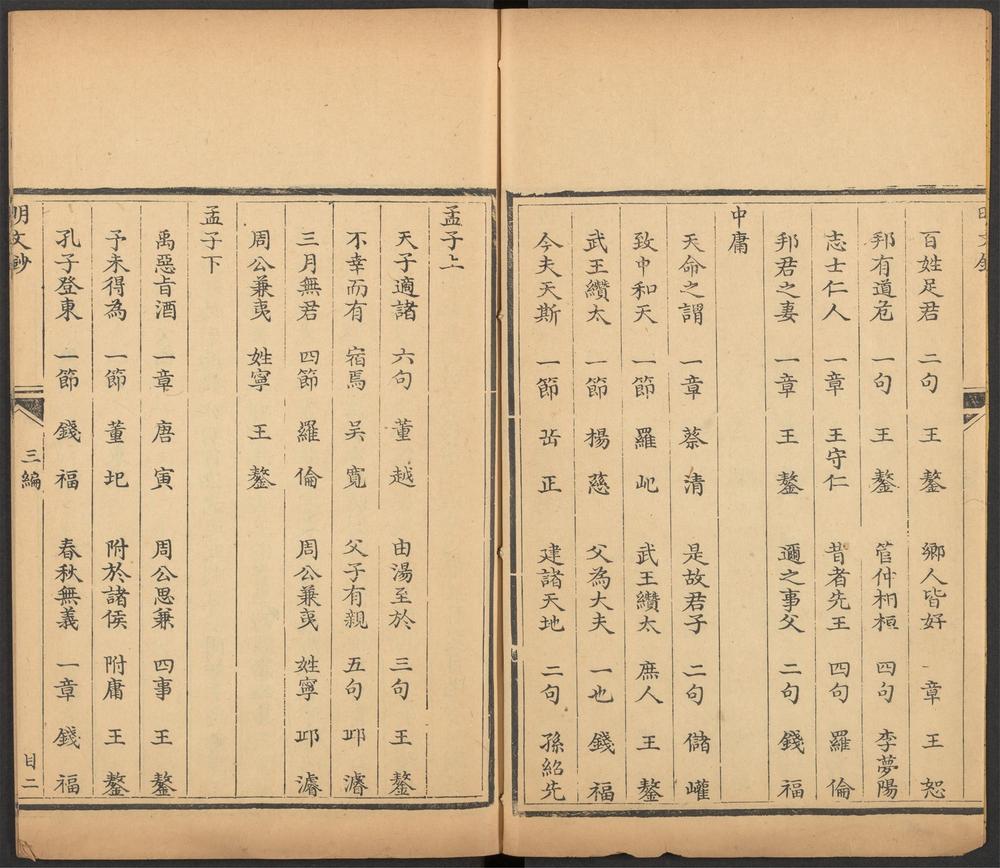 百姓足君 二句 王鏊 鄉人皆好 一章 王恕
邦有道危 一句 王鏊 管仲相桓 四句 李夢陽
志士仁人 一章 王守仁 昔者先王 四句 羅倫
邦君之妻 一章 王鏊 邇之事父 二句 錢福
中庸
天命之謂 一章 蔡清 是故君子 二句 儲巏
致中和天 一節 羅玘 武王纘太 庶人 王鏊
武王纘太 一節 楊慈 父為大夫 一也 錢福
今夫天斯 一節 岳正 建諸天地 二句 孫紹先
孟子上
天子適諸 六句 董越 由湯至於 三句 王鏊
不幸而有 宿焉 吳寬 父子有親 五句 邱濬
三月無君 四節 羅倫 周公兼夷 姓寧 邱濬
周公兼夷 姓寧 王鏊
孟子下
禹惡旨酒 一章 唐寅 周公思兼 四事 王鏊
予未得為 一節 董圯 附於諸侯 附庸 王鏊
孔子登東 一節 錢福 春秋無義 一章 錢福
明文鈔 三編 目二